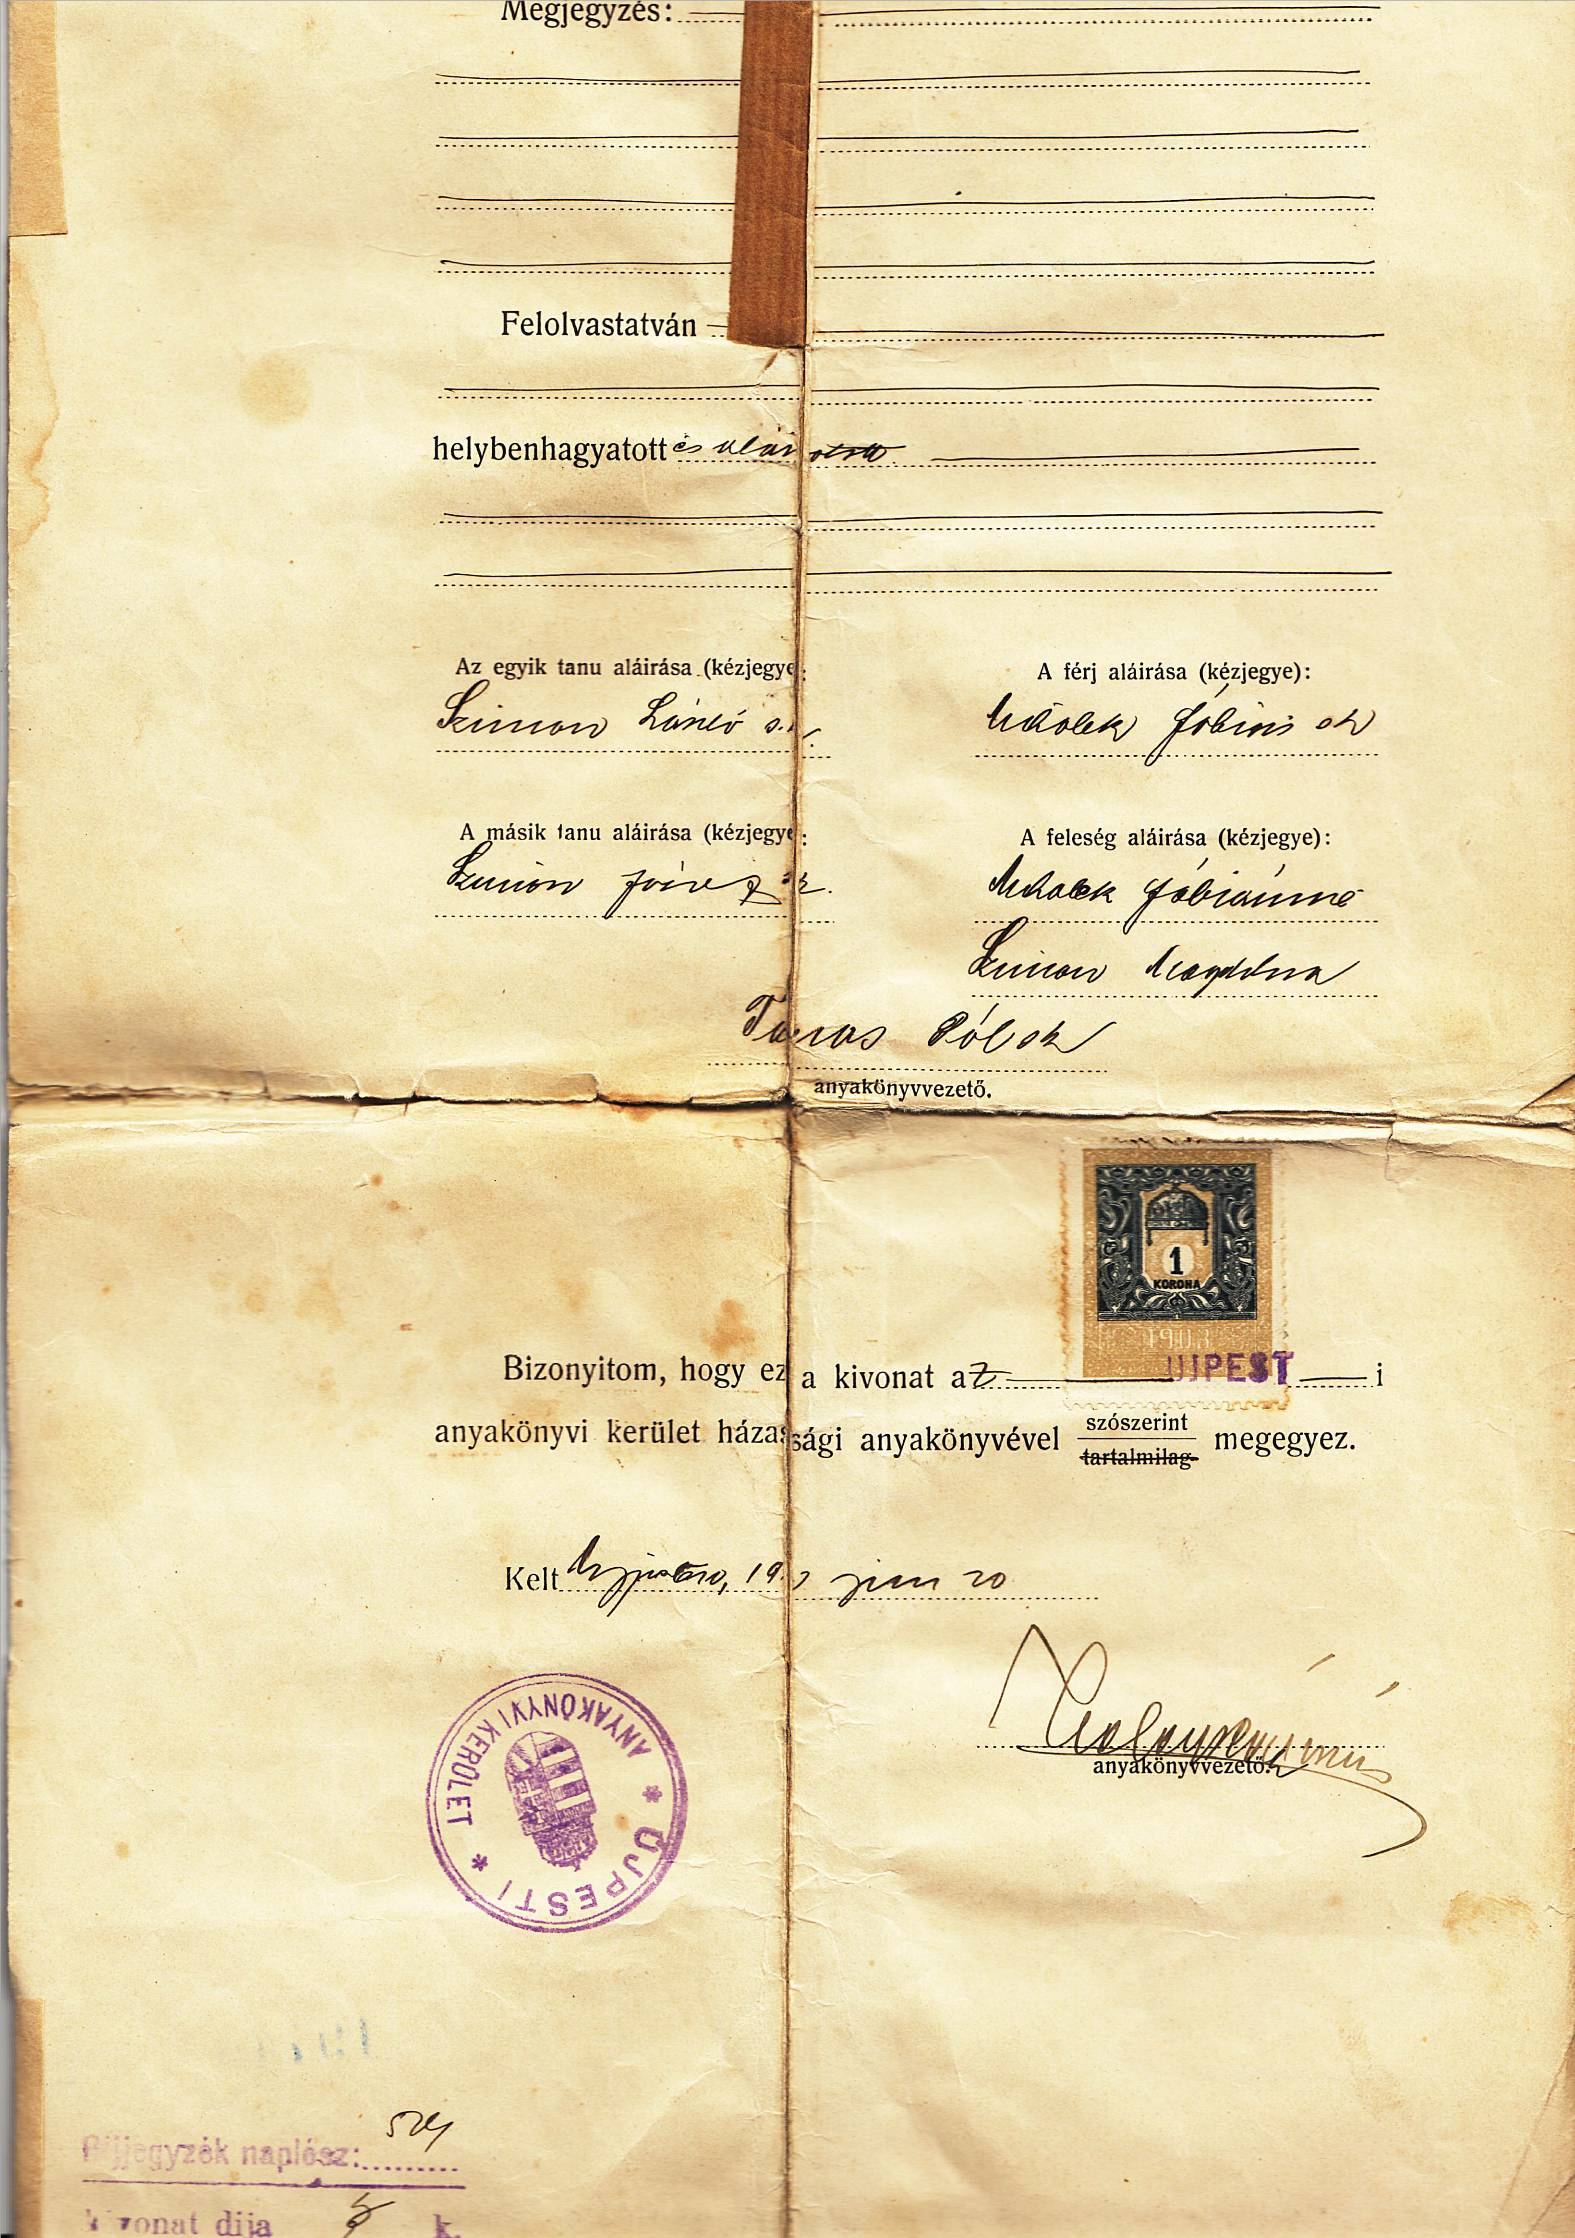 Megjegyzés:
Felolvastatván
helybenhagyatott és aláíratott
Az egyik tanu aláirása (kézjegye):
A férj aláirása (kézjegye):
Szimon László s.k.
Fábián sk
A másik tanu aláirása (kézjegye):
A feleség aláirása (kézjegye):
Szimon
Fábiánné
Szimon Magdolna
Pál sk
anyakönyvvezető.
1
KORONA
1903
Bizonyitom, hogy ez a kivonat az UJPEST i
anyakönyvi kerület házassági anyakönyvével szószerint megegyez.
tartalmilag
Kelt Ujpesten, 19 jun 20
anyakönyvvezető.
UJPESTI * ANYAKÖNYVI KERÜLET *
Díjjegyzék naplósz:
kivonat dija k.